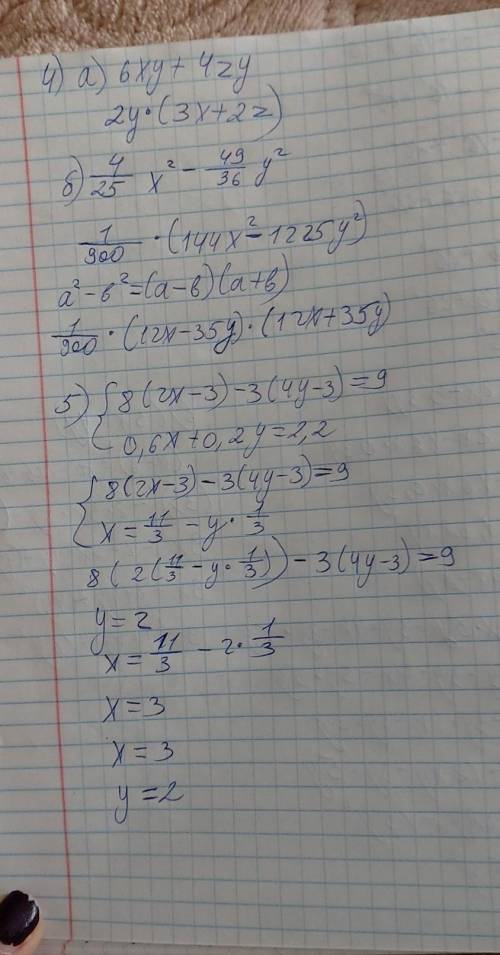 4) а) 6xy + 4zy
2y·(3x+2z)
б) 4/25 x² - 49/36 y²
1/900 ·(144x² - 1225y²)
a² - в² = (a-в)(a+в)
1/900 ·(12x-35y)·(12x+35y)
5) { 8(2x-3)-3(4y-3)=9
0,6x+0,2y=2,2
{ 8(2x-3)-3(4y-3)=9
x = 11/3 - y· 1/3
8(2(11/3 - y· 1/3))-3(4y-3)=9
y=2
x= 11/3 - 2· 1/3
x=3
x=3
y=2